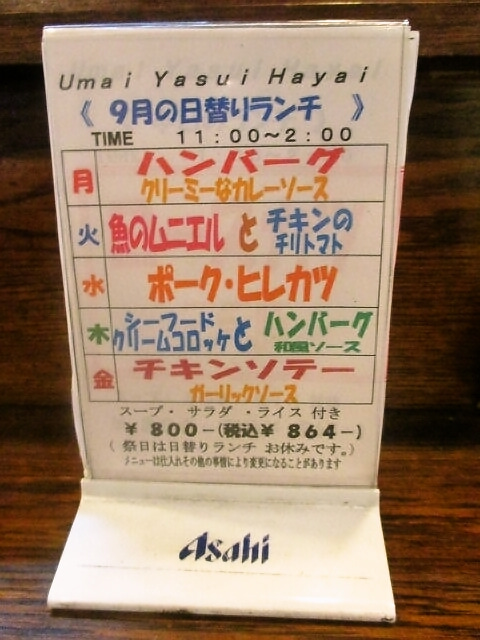 Umai Yasui Hayai
《 9月の日替りランチ 》
TIME 11:00～2:00
月 ハンバーグ
クリーミーなカレーソース
火 魚のムニエル と チキンの
チリトマト
水 ポーク・ヒレカツ
木 シーフード
クリームコロッケと ハンバーグ
和風ソース
金 チキンソテー
ガーリックソース
スープ・ サラダ ・ライス 付き
¥ 800－(税込¥ 864－)
( 祭日は日替りランチ お休みです。)
メニューは仕入れその他の事情により変更になることがあります
Asahi